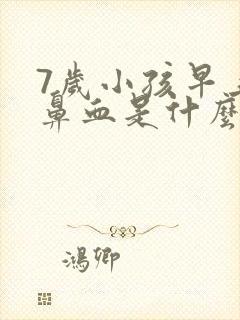 7歲小孩早
鼻血是什麼
鴻卿